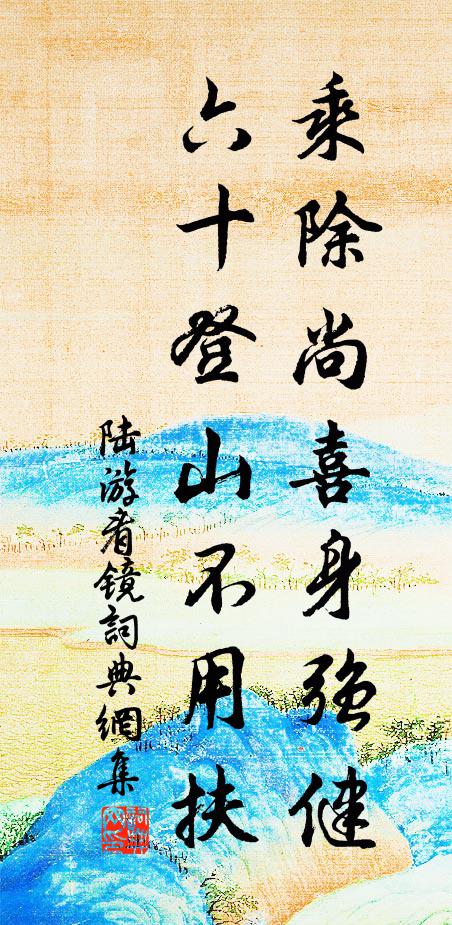 乘除尚喜身強健
六十登山不用扶
陆游看镜詞典網集